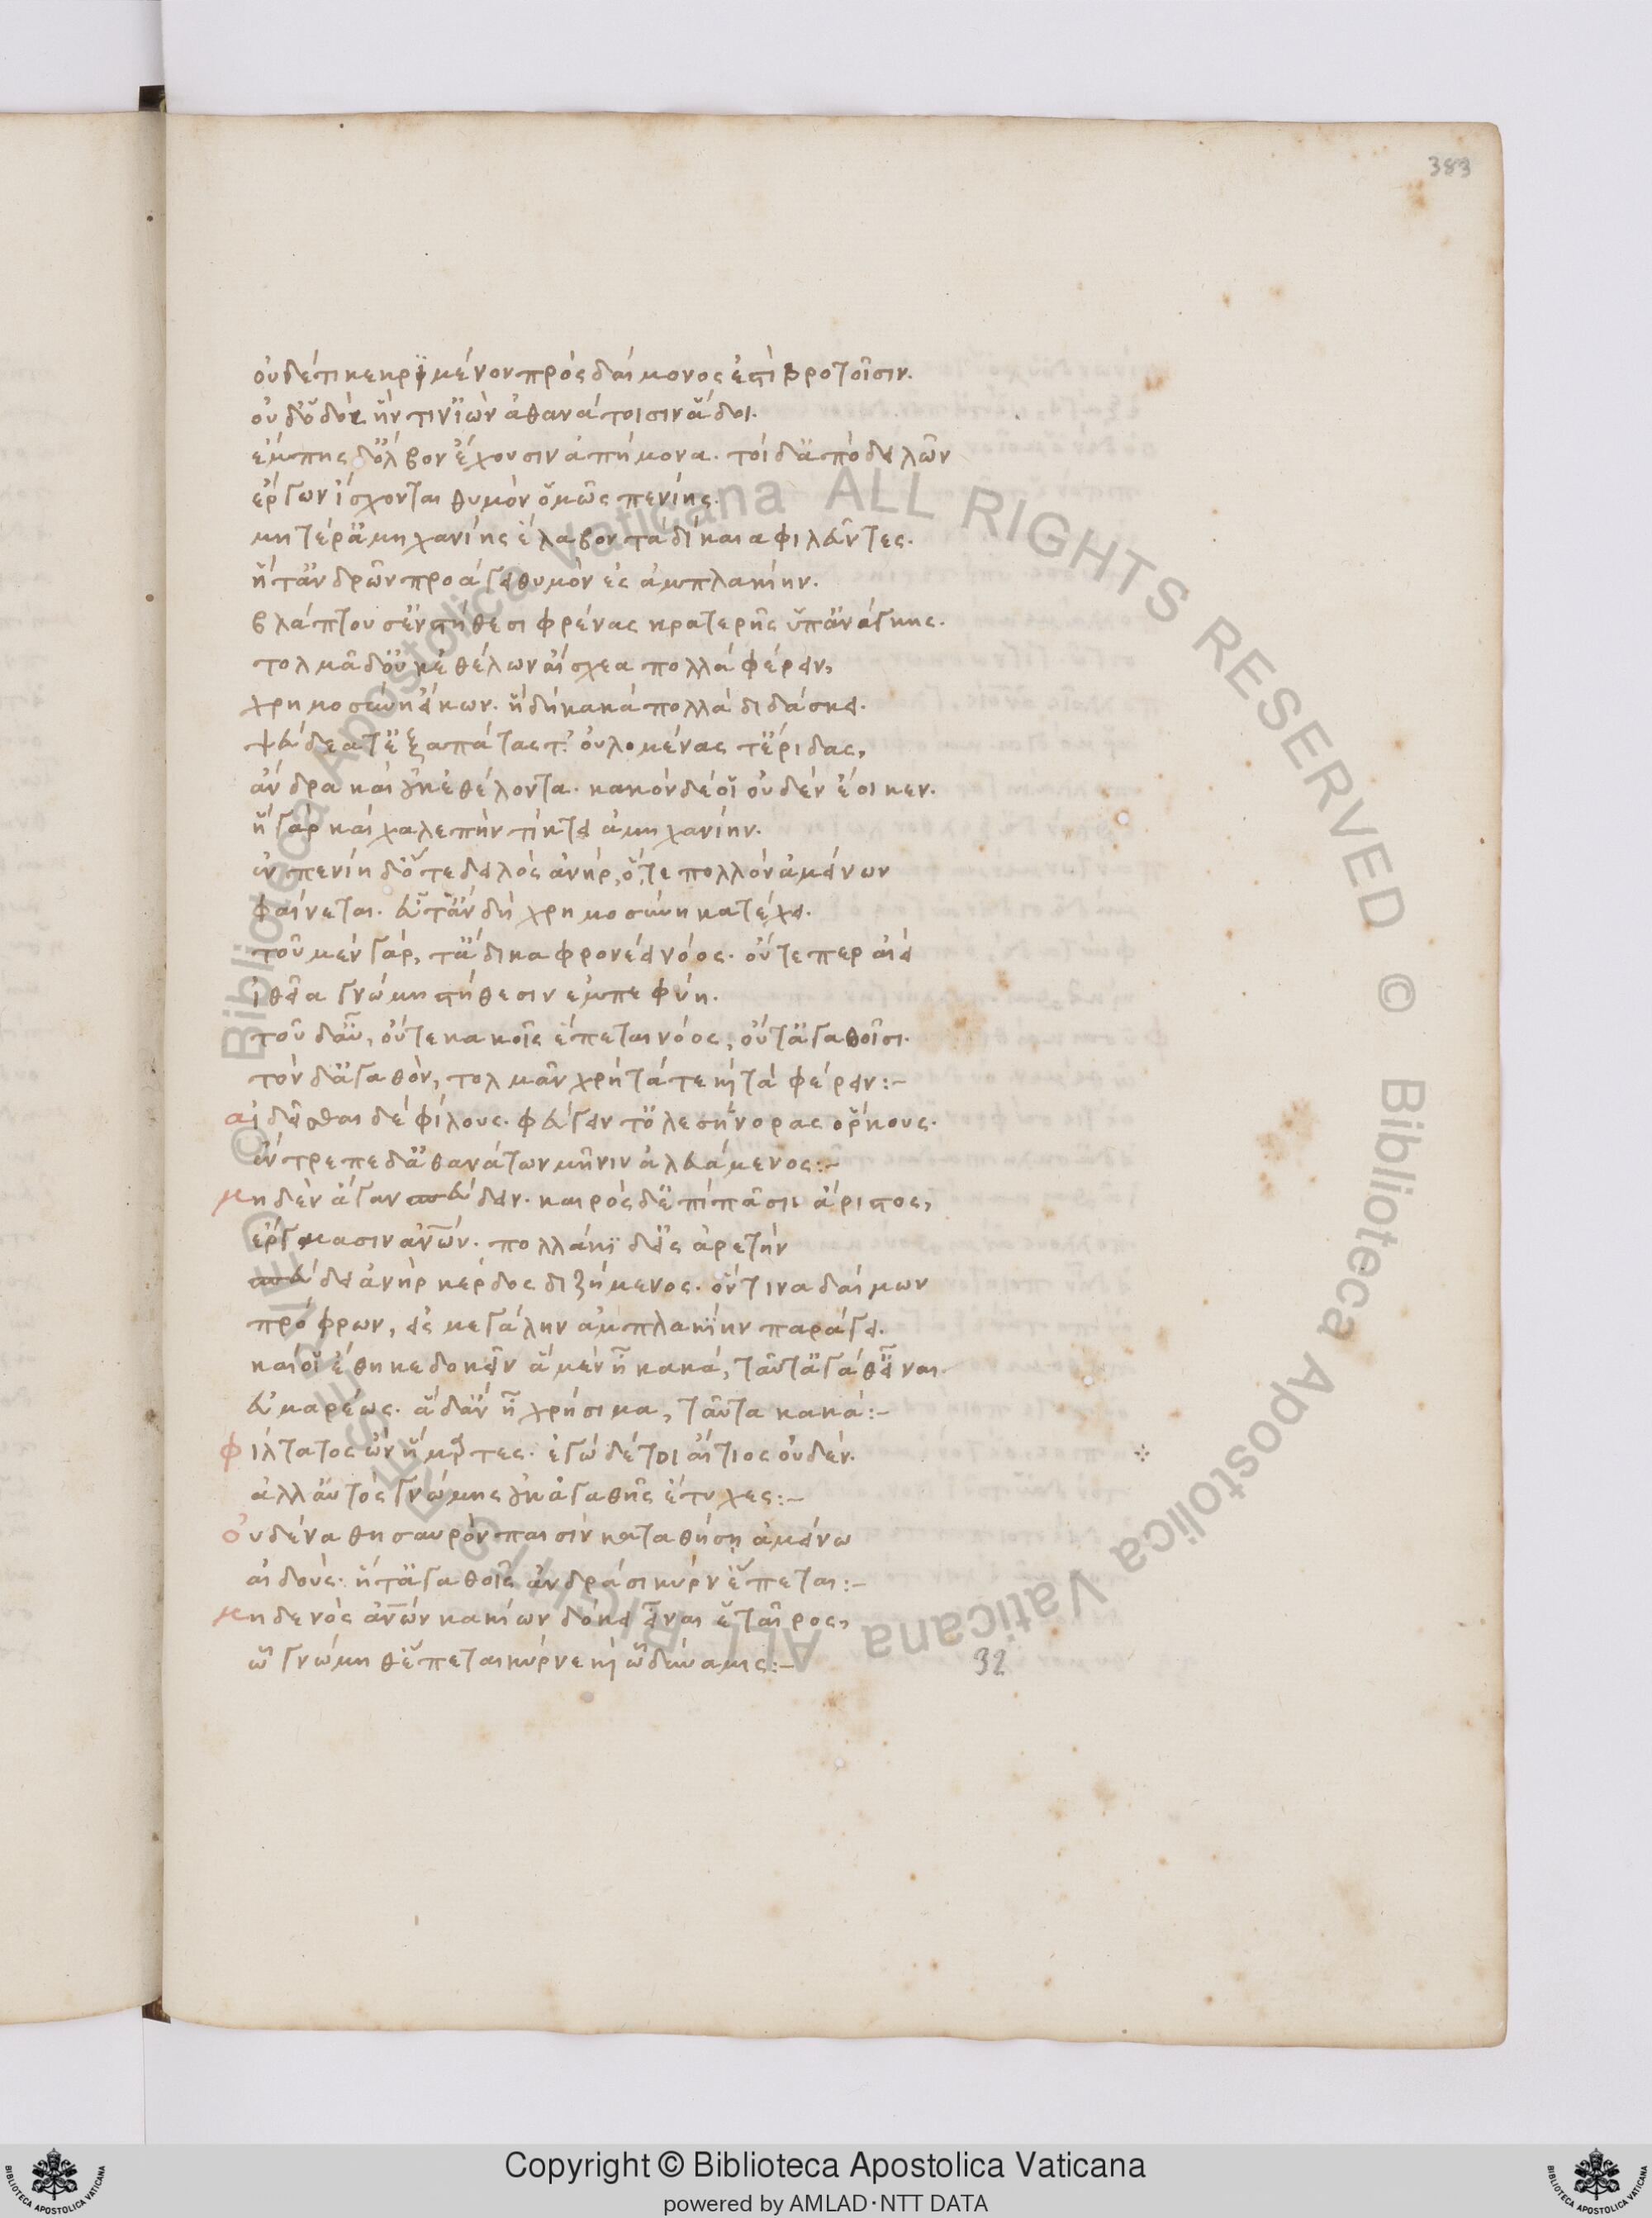 383
οὐδέτι κεκριμένον πρὸς δαίμονος ἐστὶ βροτοῖσιν.
οὐδ' ὁδὸς ἥν τιν' ἰὼν ἀθανάτοισιν ἅδοι.
ἔμπης δ' ὄλβον ἔχουσιν ἀπήμονα. τοὶ δ' ἀπὸ δειλῶν
ἔργων ἴσχονται θυμὸν ὅμως πενίης.
μητέρ' ἀμηχανίης ἔλαβον τὰ δίκαια φιλεῦντες.
ἥτ' ἀνδρῶν προάγει θυμὸν ἐς ἀμπλακίην.
βλάπτουσ' ἐν στήθεσι φρένας κρατερῆς ὑπ' ἀνάγκης.
τολμᾶ δ' οὐκ ἐθέλων αἴσχεα πολλὰ φέρειν,
χρημοσύνῃ εἴκων. ἣ δὴ κακὰ πολλὰ διδάσκει.
ψεύδεά τ' ἐξαπάτας τ' οὐλομένας τ' ἔριδας,
ἄνδρα καὶ οὐκ ἐθέλοντα. κακὸν δέ οἱ οὐδὲν ἔοικεν.
ἣ γὰρ καὶ χαλεπὴν τίκτει ἀμηχανίην.
ἐν πενίῃ δ' ὅτε δειλὸς ἀνήρ, ὅτε πολλὸν ἀμείνων
φαίνεται. εὖτ' ἂν δὴ χρημοσύνη κατέχει.
τοῦ μὲν γάρ, τ' ἄδικα φρονέει νόος. οὔτε περ αἰεὶ
ἰθεῖα γνώμη στήθεσιν ἐμπεφύη.
τοῦ δ' αὖ, οὔτε κακοῖς ἕπεται νόος, οὔτ' ἀγαθοῖσι.
τὸν δ' ἀγαθὸν, τολμᾶν χρὴ τά τε καὶ τὰ φέρειν:-
αἰδεῖσθαι δὲ φίλους. φεύγειν τ' ὀλεσήνορας ὅρκους.
ἔντρεπε δ' ἀθανάτων μῆνιν ἀλευάμενος:-
μηδὲν ἄγαν σπεύδειν. καιρὸς δ' ἐπὶ πᾶσι ἄριστος,
ἔργμασιν ἀνῶν. πολλάκι δ' εἰς ἀρετὴν
σπεύδει ἀνὴρ κέρδος διζήμενος. ὅντινα δαίμων
πρόφρων, εἰς μεγάλην ἀμπλακίην παράγει.
καί οἱ ἔθηκε δοκεῖν ἃ μὲν ᾖ κακά, ταῦτ' ἀγάθ' εἶναι.
εὐμαρέως. ἃ δ' ἂν ᾖ χρήσιμα, ταῦτα κακά:-
φίλτατος ὢν ἥμαρτες. ἐγὼ δέ τοι αἴτιος οὐδέν.
ἀλλ' αὐτὸς γνώμης οὐκ ἀγαθῆς ἔτυχες:-
Οὐδένα θησαυρὸν παισὶν καταθήσῃ ἀμείνω
αἰδοῦς. ἥτ' ἀγαθοῖς ἀνδράσι κύρν' ἕπεται:-
μηδενὸς ἀνῶν κακίων δόκει εἶναι ἑταῖρος,
ᾧ γνώμη θ' ἕπεται κύρνε καὶ ᾧ δύναμις:-
32
© Biblioteca Apostolica Vaticana ALL RIGHTS RESERVED © Biblioteca Apostolica Vaticana ALL RIGHTS RESERVED
Copyright © Biblioteca Apostolica Vaticana
powered by AMLAD·NTT DATA
BIBLIOTECA APOSTOLICA VATICANA
BIBLIOTECA APOSTOLICA VATICANA